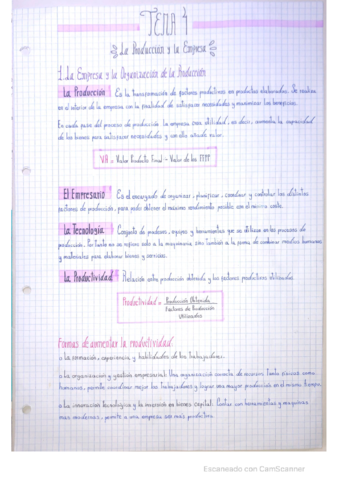 TEMA 4
La Producción y la Empresa
1. La Empresa y la Organización de la Producción
La Producción Es la transformación de factores productivos en productos elaborados. Se realiza
en el interior de la empresa con la finalidad de satisfacer necesidades y maximizar los beneficios.
En cada paso del proceso de producción la empresa crea utilidad, es decir, aumenta la capacidad
de los bienes para satisfacer necesidades y con ello añade valor.
VA = Valor Producto Final - Valor de los FFPP
El Empresario Es el encargado de organizar, planificar, coordinar y controlar los distintos
factores de producción, para poder obtener el máximo rendimiento posible con el mínimo coste.
La Tecnología Conjunto de saberes, equipos y herramientas que se utilizan en los procesos de
producción. Por tanto no se refiere solo a la maquinaria sino también a la forma de combinar medios humanos
y materiales para elaborar bienes y servicios.
La Productividad Relación entre producción obtenida y los factores productivos utilizados.
Productividad = Producción Obtenida
Factores de Producción
Utilizados
Formas de aumentar la productividad
La formación, experiencia y habilidades de los trabajadores.
La organización y gestión empresarial: Una organización correcta de recursos tanto físicos como
humanos, permite coordinar mejor los trabajadores y lograr una mayor producción en el mismo tiempo.
La innovación tecnológica y la inversión en bienes capital: Contar con herramientas y máquinas
más modernas, permite a una empresa ser más productiva.
Escaneado con CamScanner